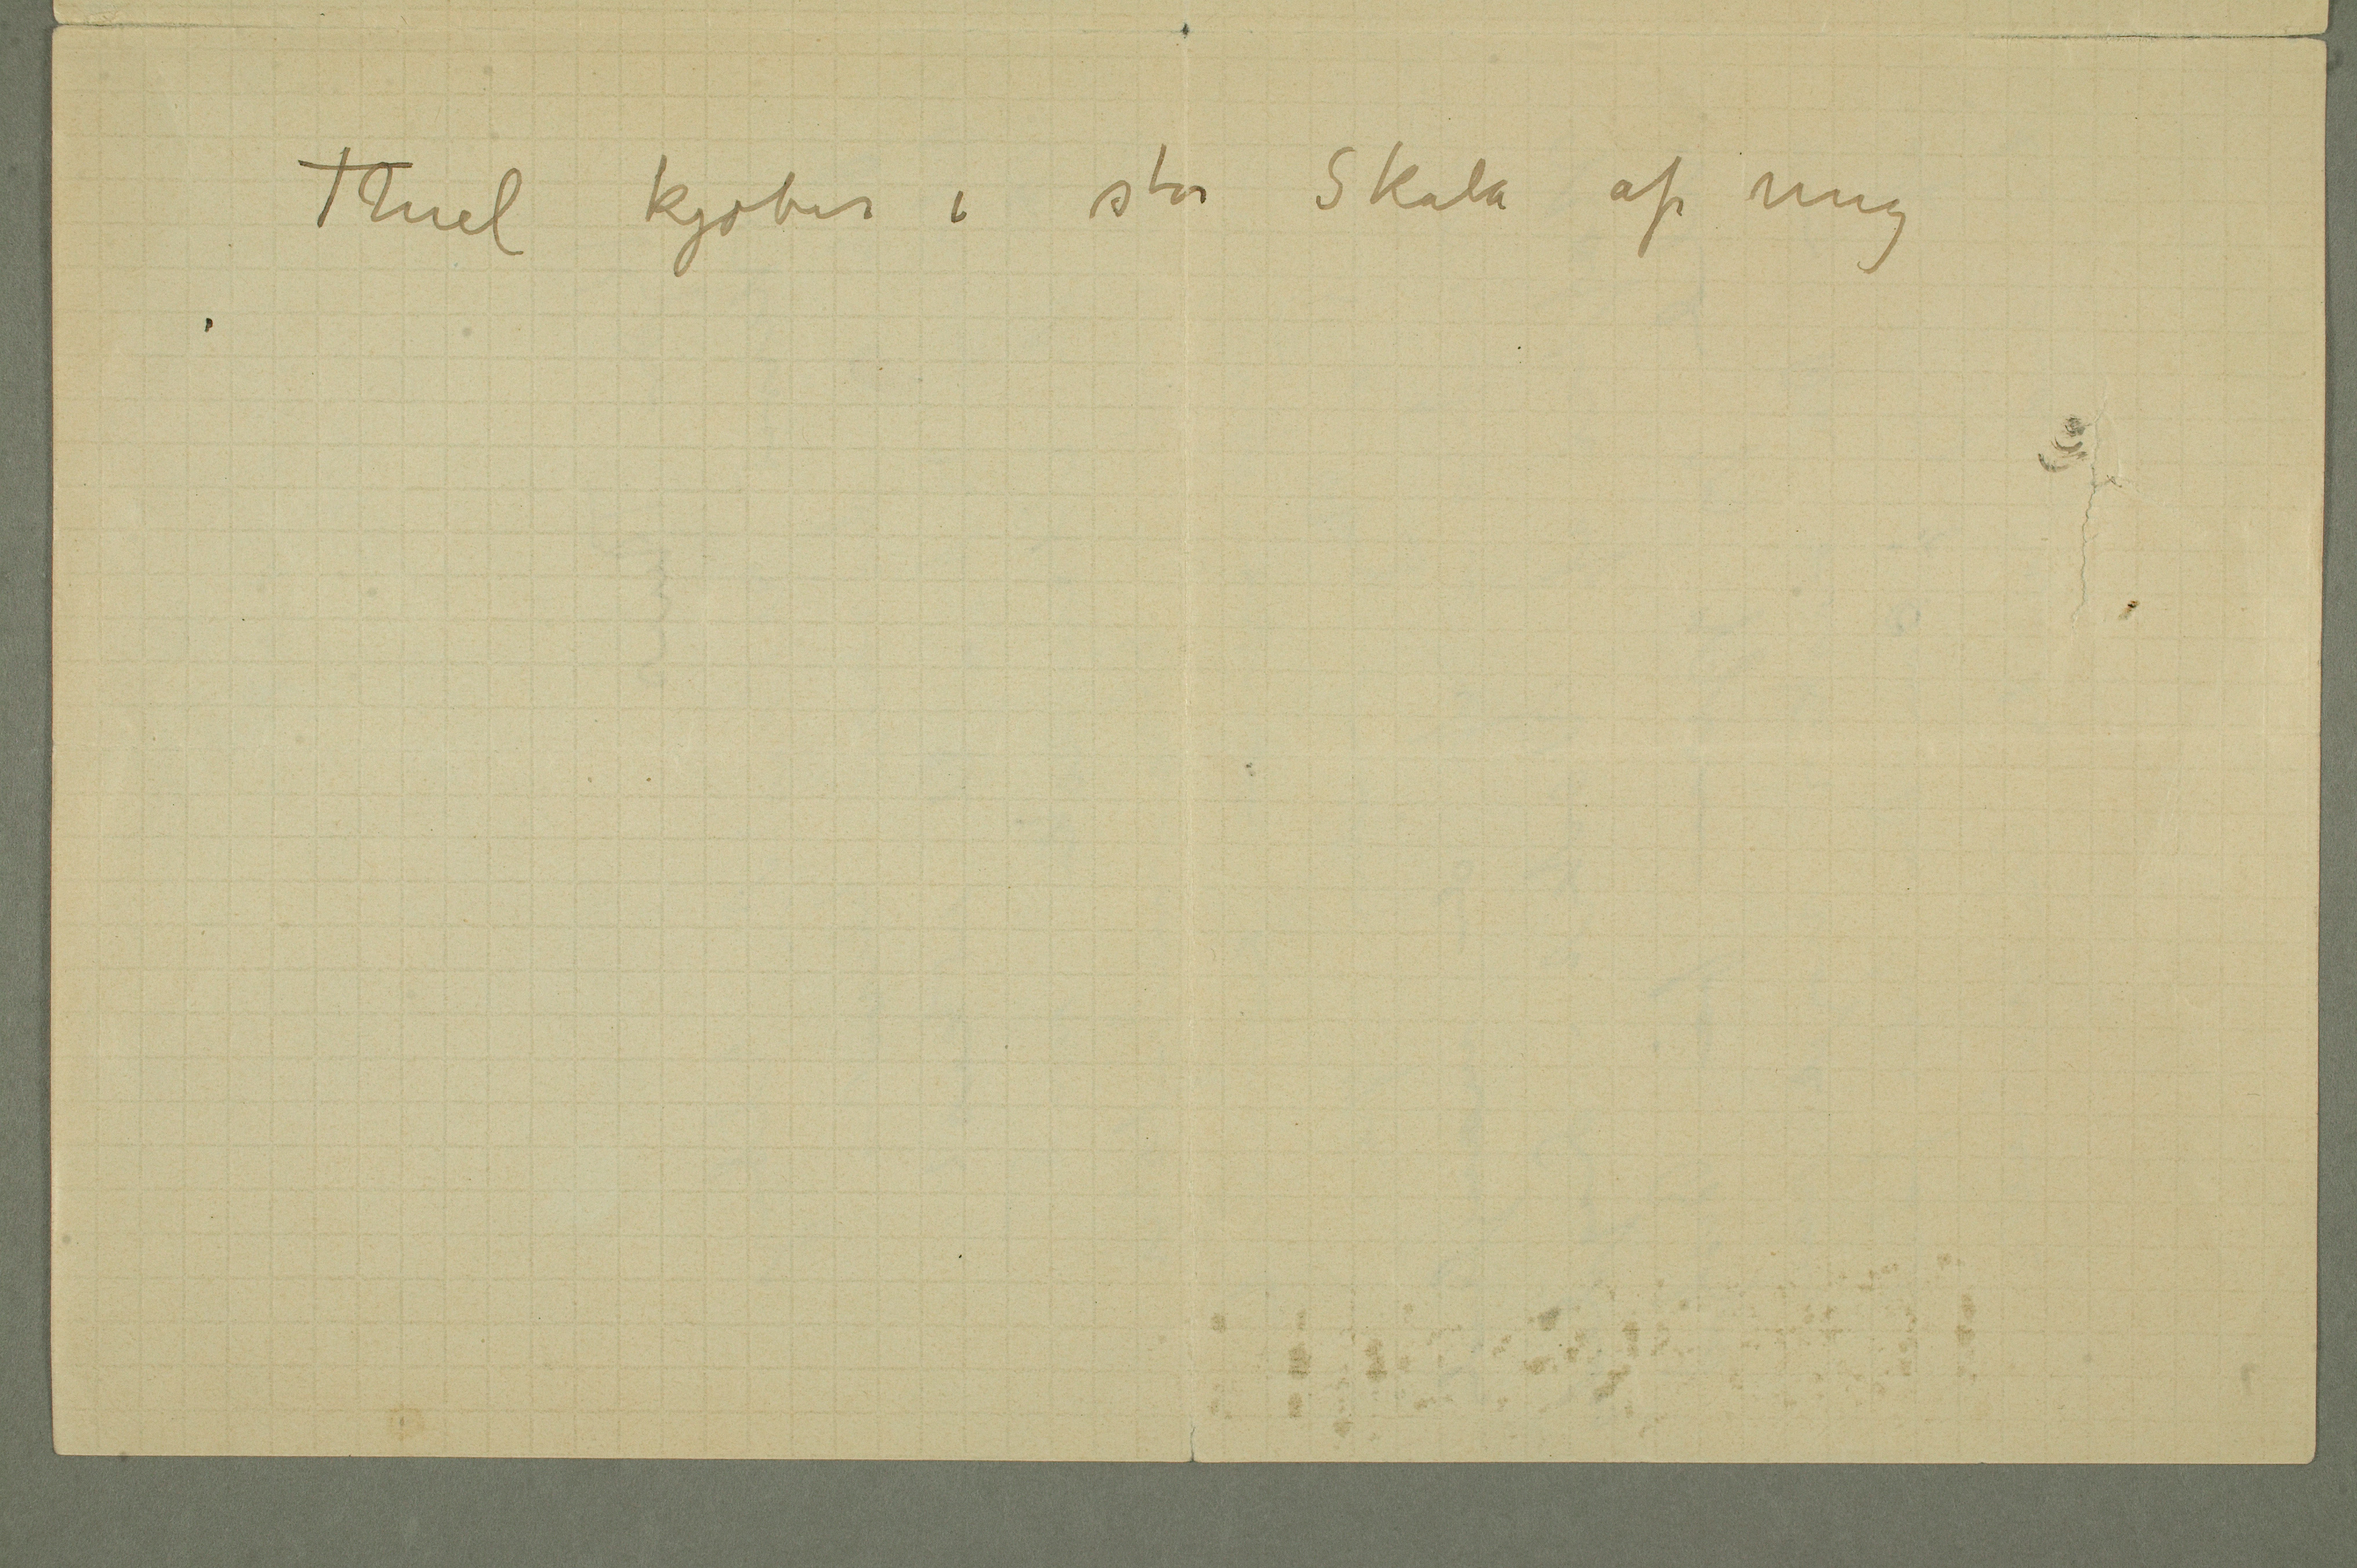 Thiel kjøber i stor Skala af mig